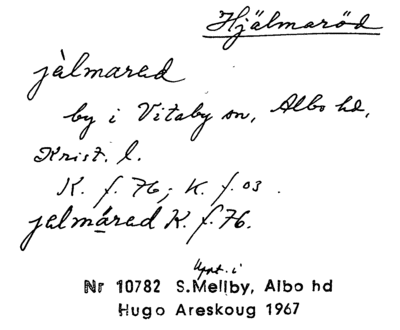 Hjälmaröd
jàlmarad
by i Vitaby sn, Albo hd,
Krist. l.
K. f. 76; K. f. 03.
jalmárad K. f. 76.
Uppt. i
Nr 10782 S.Mellby, Albo hd
Hugo Areskoug 1967